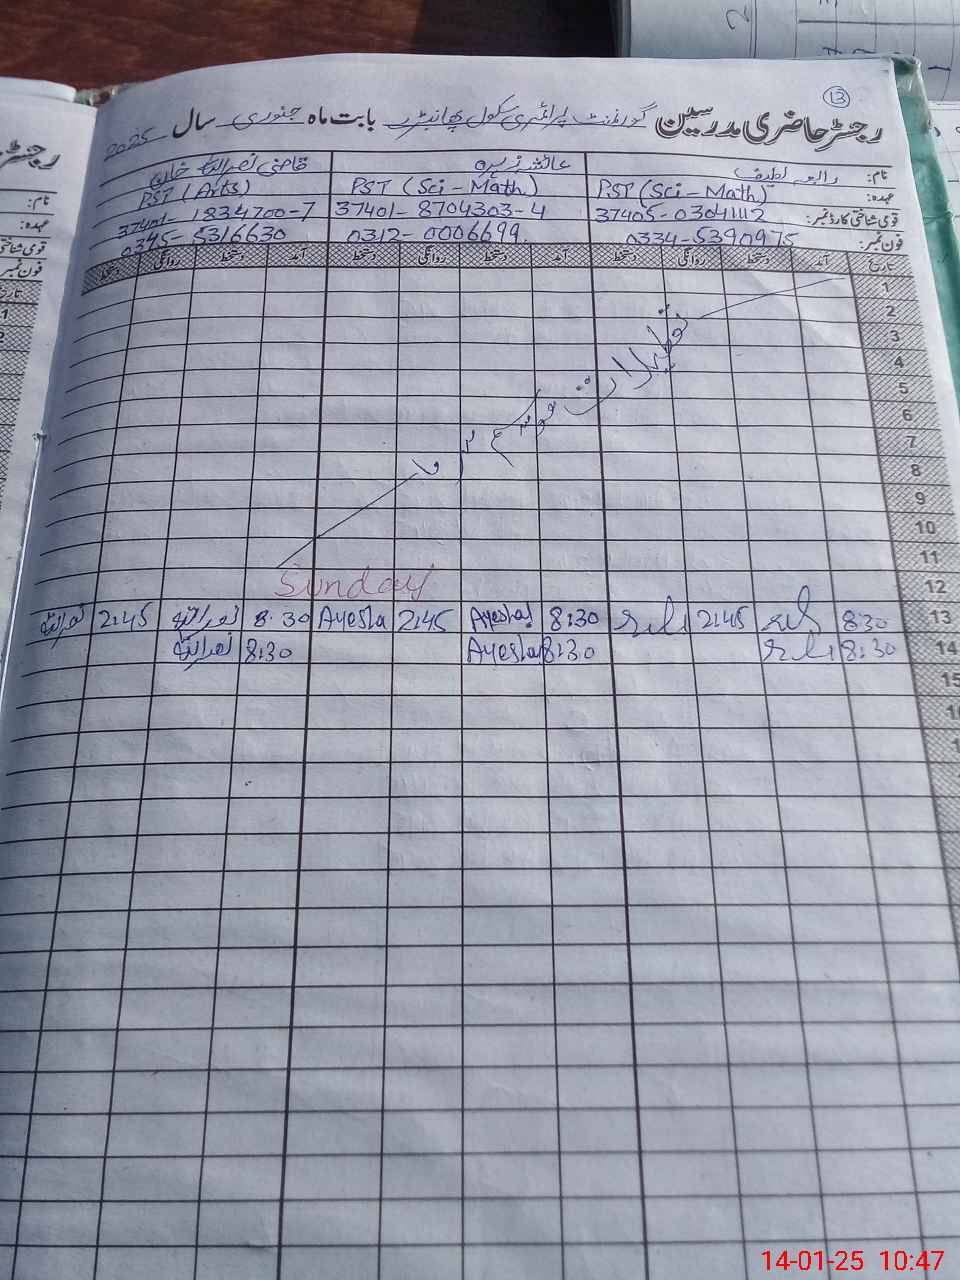 13
رجسٹر حاضری مدرسین گورنمنٹ پرائمری سکول بابت ماہ جنوری سال 2025
نام: رابعہ لطیف عائشہ زہرہ قاضی نصراللہ خان
عہدہ: PST (Sci - Math) PST (Sci - Math) PST (Arts)
قومی شناختی کارڈ نمبر: 37405-0304112 37401-8704303-4 37401-1834700-7
فون نمبر: 0334-5390975 0312-0006699 0345-5316630
تاریخ آمد دستخط روانگی دستخط آمد دستخط روانگی دستخط آمد دستخط روانگی دستخط
1
2
3
4
5
6
7
8
9
10
11
تعطیلات موسم سرما
12 Sunday
13 8:30 رابعہ 2:45 رابعہ 8:30 Ayesha 2:45 Ayesha 8:30 نصراللہ 2:45 نصراللہ
14 8:30 رابعہ 8:30 Ayesha 8:30 نصراللہ
15
14-01-25 10:47